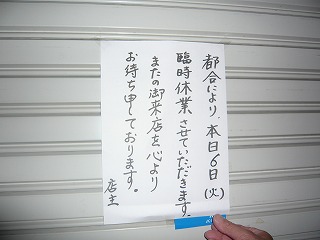 都合により、本日6日(火)
臨時休業させていただきます。
またの御来店を心より
お待ち申しております。
店主